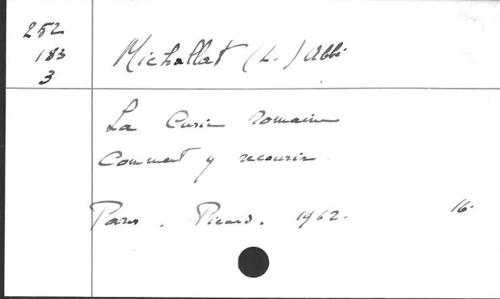 252
183
3
Michallat (L.) Abbé
La Curie romaine
Comment y recourir
Paris. Picard. 1962. 16.